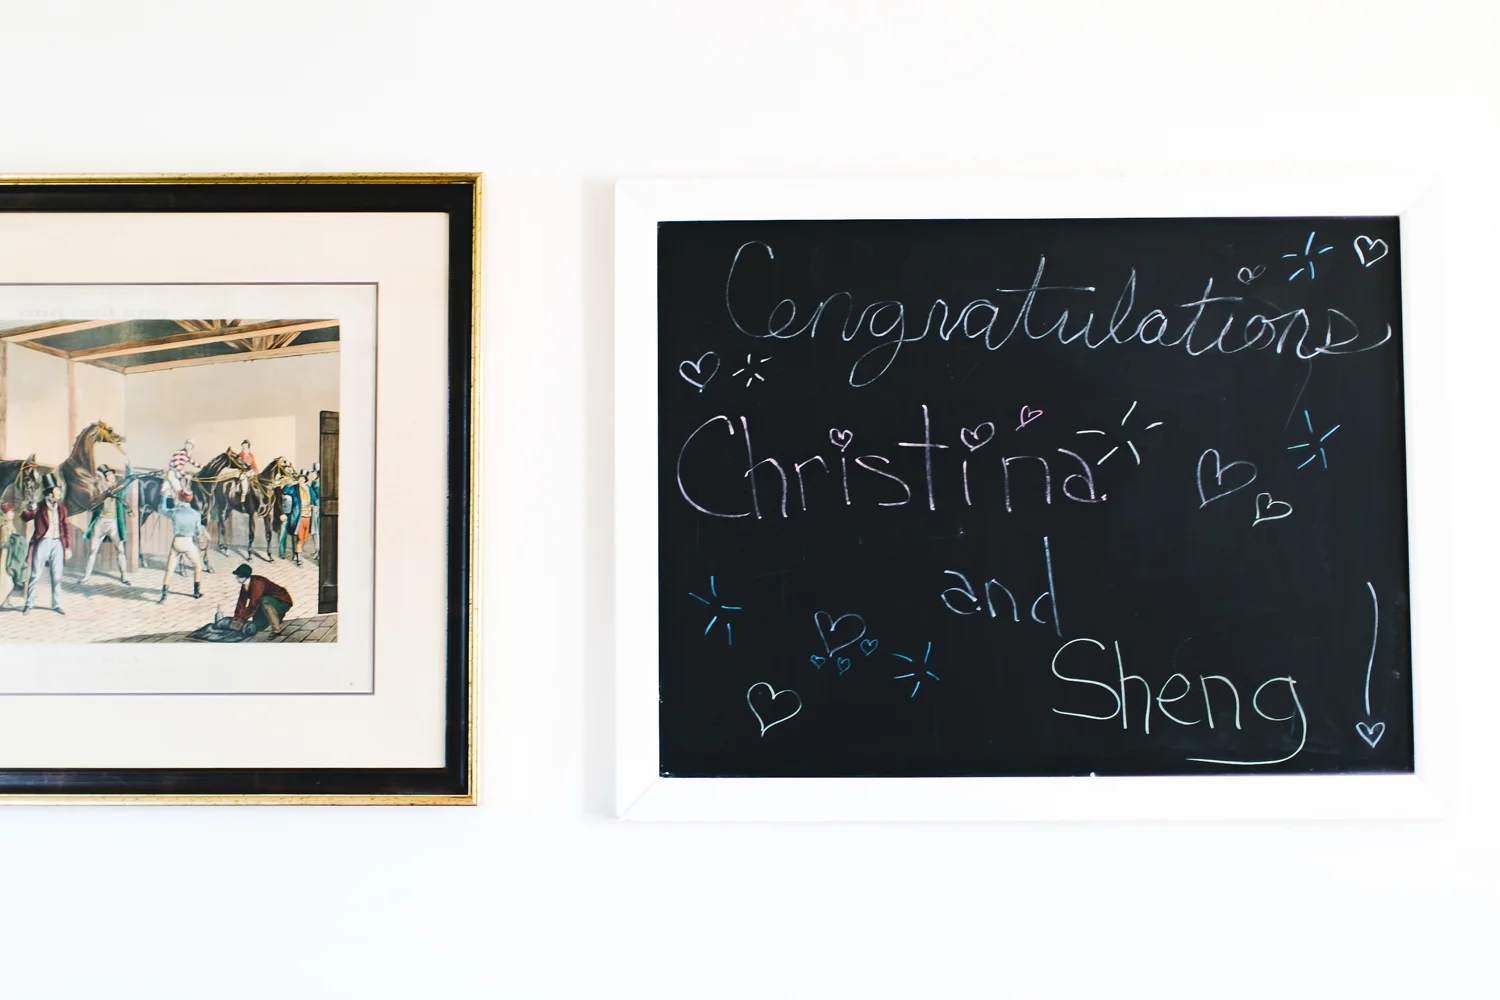 Congratulations
Christina
and
Sheng!